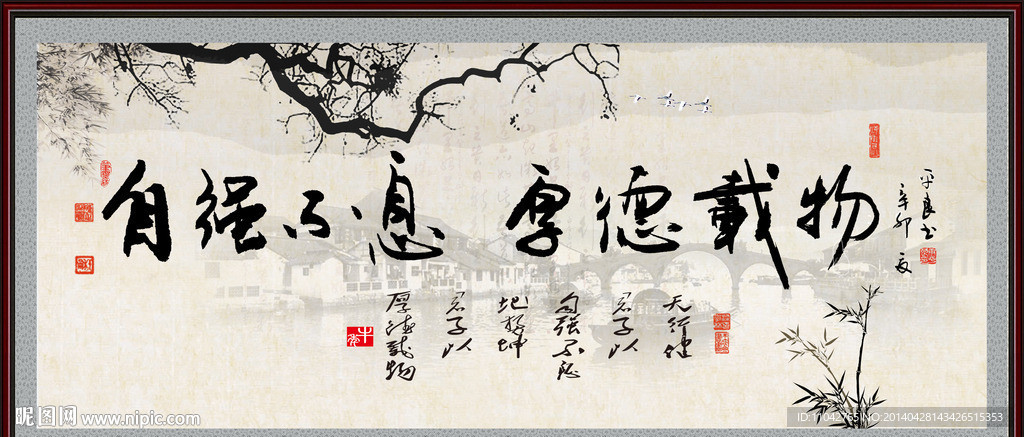 自强不息 厚德载物
平良书
辛卯夏
天行健
君子以
自强不息
地势坤
君子以
厚德载物
昵图网 www.nipic.com
ID:11042765 NO:20140428143426515353